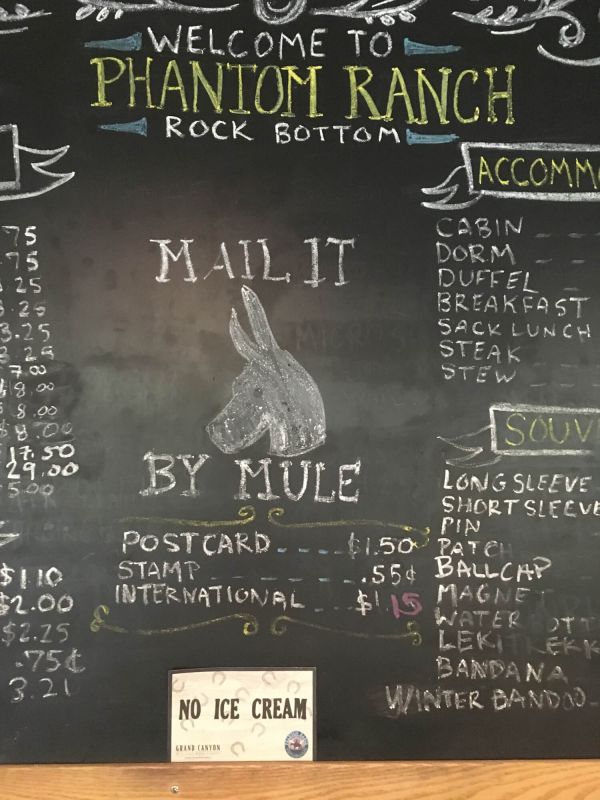 WELCOME TO
PHANTOM RANCH
ROCK BOTTOM
75
75
25
25
3.25
3.25
7.00
$8.00
8.00
$8.00
17.50
29.00
5.00
$1.10
$2.00
$2.25
.75¢
3.21
MAIL IT
BY MULE
POSTCARD $1.50
STAMP .55¢
INTERNATIONAL $1.15
NO ICE CREAM
GRAND CANYON
ACCOMM
CABIN
DORM
DUFFEL
BREAKFAST
SACK LUNCH
STEAK
STEW
SOUV
LONG SLEEVE
SHORT SLEEVE
PIN
PATCH
BALLCAP
MAGNE
WATER OTT
LEKI REKK
BANDANA
WINTER BANDOO